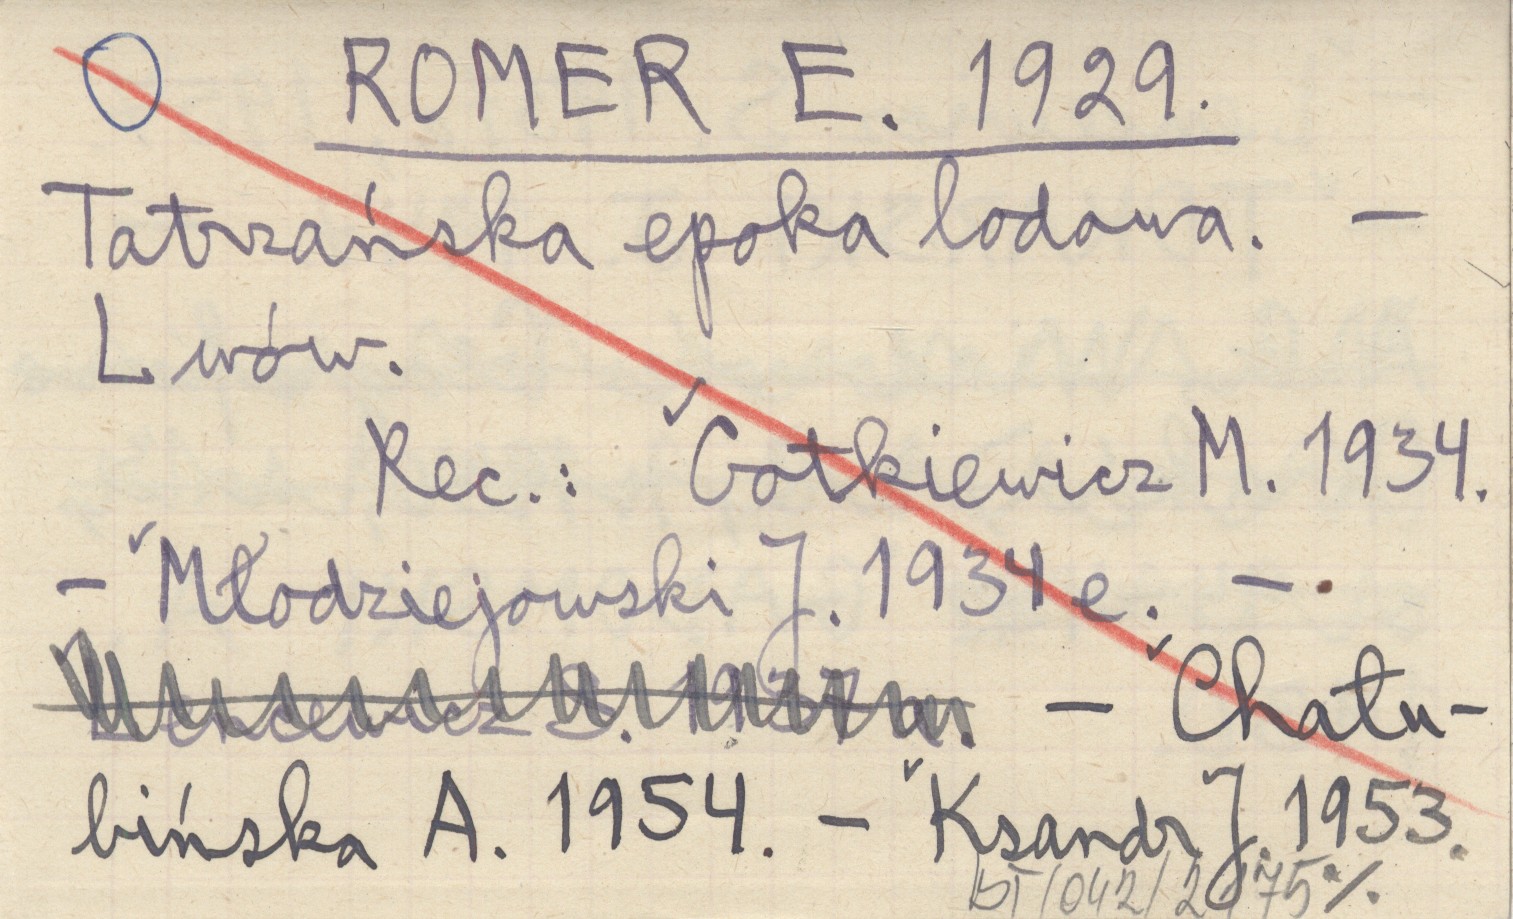 ROMER E. 1929.
Tatrzańska epoka lodowa. —
Lwów.
Rec.: Gotkiewicz M. 1934.
— Młodziejowski J. 1934 e. —
— Chału-
bińska A. 1954. — Ksandr J. 1953.
bT/042/2/75 ./.